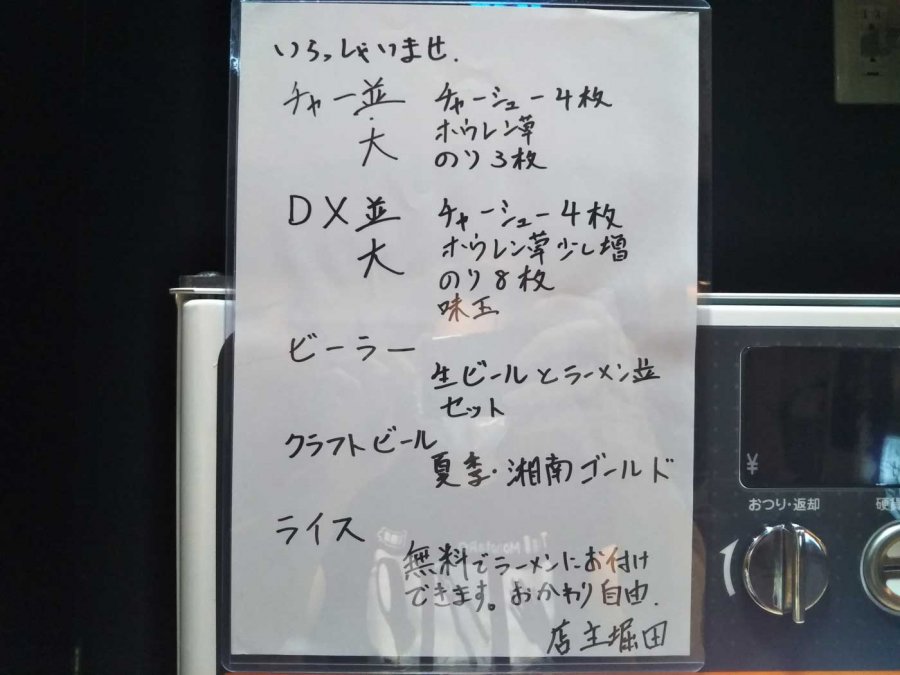 いらっしゃいませ.
チャー並 チャーシュー4枚
ホウレン草
大 のり3枚
DX並 チャーシュー4枚
大 ホウレン草少し増
のり8枚
味玉
ビーラー
生ビールとラーメン並
セット
クラフトビール
夏季・湘南ゴールド
ライス
無料でラーメンにお付け
できます。おかわり自由.
店主堀田
¥
おつり・返却
硬貨